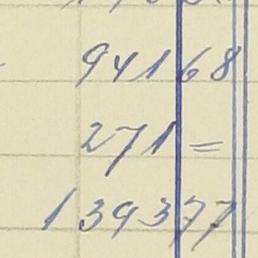 94168
271=
139377